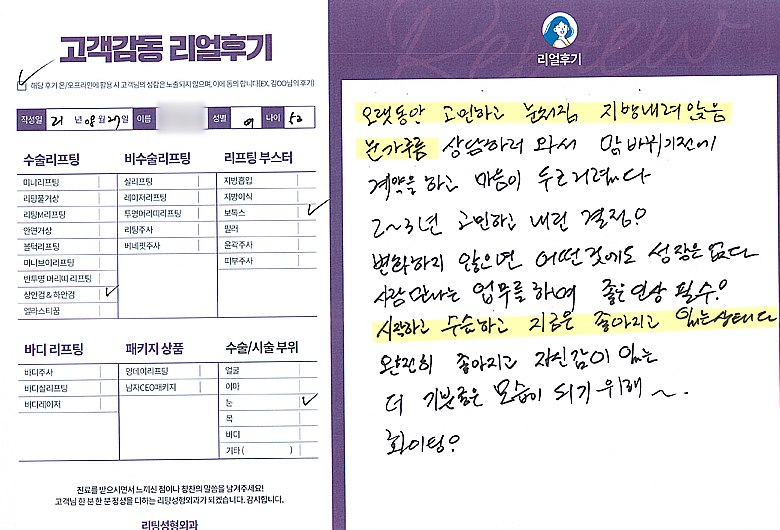 고객감동 리얼후기
해당 후기 온/오프라인에 활용 시 고객님의 성함은 노출되지 않으며, 이에 동의 합니다(EX. 김OO님의 후기)
작성일 21 년 08 월 27 일 이름 성별 여 나이 52
수술리프팅
미니리프팅
리팅풀거상
리팅M리프팅
안면거상
블럭리프팅
미니브이리프팅
반투명 머리띠 리프팅
상안검 & 하안검
엘라스티꿈
비수술리프팅
실리프팅
레이저리프팅
투명머리띠리프팅
리팅주사
버네핏주사
리프팅 부스터
지방흡입
지방이식
보톡스
필러
윤곽주사
피부주사
바디 리프팅
바디주사
바디실리프팅
바디레이저
패키지 상품
원데이리프팅
남자CEO패키지
수술/시술 부위
얼굴
이마
눈
목
바디
기타 ( )
진료를 받으시면서 느끼신 점이나 칭찬의 말씀을 남겨주세요!
고객님 한 분 한 분 정성을 다하는 리팅성형외과가 되겠습니다. 감사합니다.
리팅성형외과
Review
리얼후기
오랫동안 고민하고 눈처짐 지방내려앉음
눈가주름 상담하러 와서 맘 바뀌기전에
계약을 하고 마음이 두근거렸다
2~3년 고민하고 내린 결정?
변화하지 않으면 어떤것에도 성장은 없다
사람 만나는 업무를 하며 좋은 인상 필수?
시작하고 수술하고 지금은 좋아지고 있는상태다
완전히 좋아지고 자신감이 있는
더 기분좋은 모습이 되기 위해 ~.
화이팅?